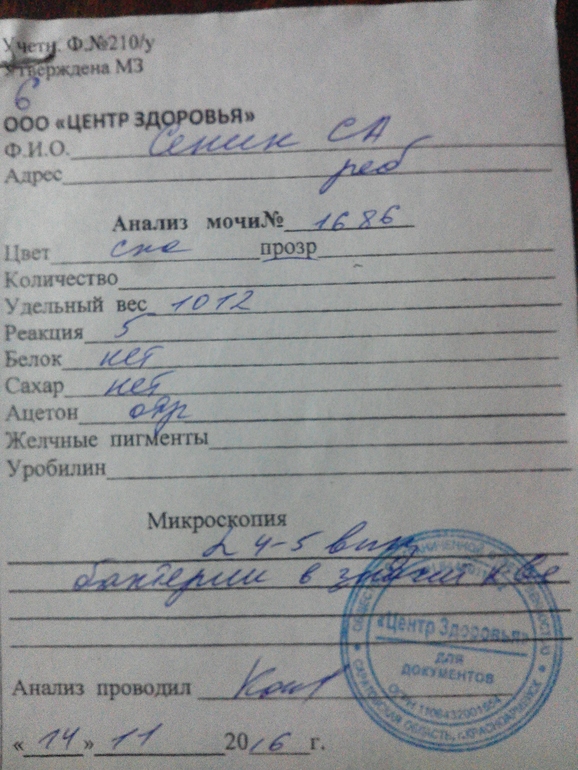 Учетн. Ф.№210/у
Утверждена МЗ
6
ООО «ЦЕНТР ЗДОРОВЬЯ»
Ф.И.О. Сенин СА
Адрес реб
Анализ мочи№ 1686
Цвет прозр
Количество
Удельный вес 1012
Реакция 5
Белок нет
Сахар нет
Ацетон отр
Желчные пигменты
Уробилин
Микроскопия
L 4-5 в п/з
бактерии в значит к ве
«Центр Здоровья»
ДЛЯ
ДОКУМЕНТОВ
САРАТОВСКАЯ ОБЛАСТЬ, г.КРАСНОАРМЕЙСК
Анализ проводил
«14» 11 2016г.